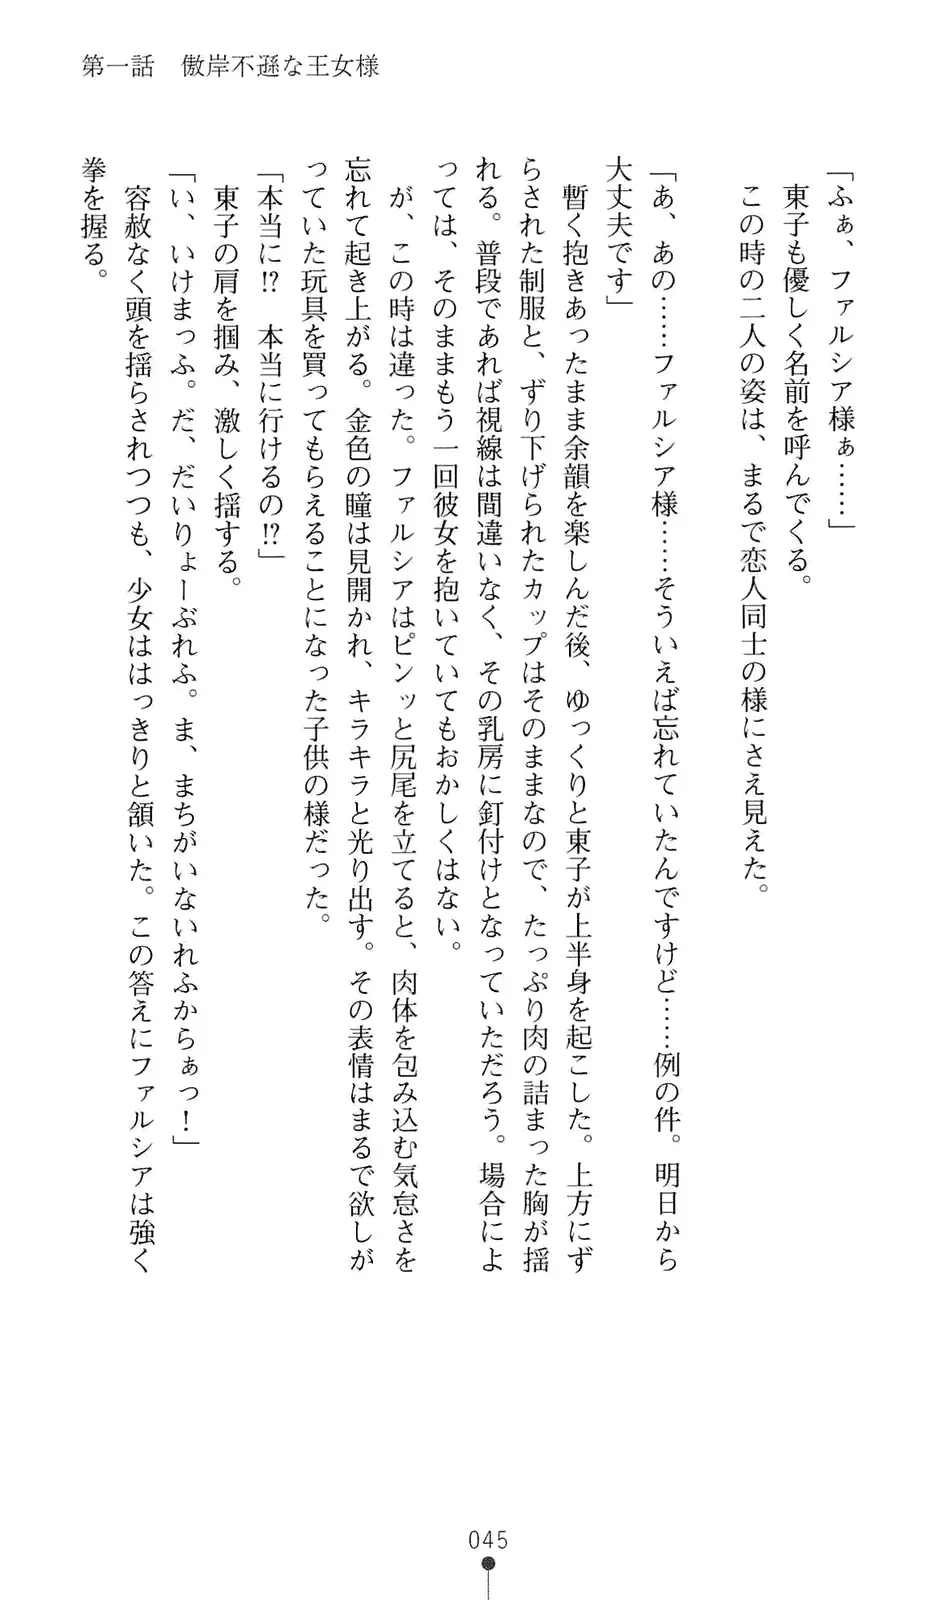 第一話　傲岸不遜な王女様
「ふぁ、ファルシア様ぁ……」
東子も優しく名前を呼んでくる。
この時の二人の姿は、まるで恋人同士の様にさえ見えた。
「あ、あの……ファルシア様……そういえば忘れていたんですけど……例の件。明日から
大丈夫です」
暫く抱きあったまま余韻を楽しんだ後、ゆっくりと東子が上半身を起こした。上方にず
らされた制服と、ずり下げられたカップはそのままなので、たっぷり肉の詰まった胸が揺
れる。普段であれば視線は間違いなく、その乳房に釘付けとなっていただろう。場合によ
っては、そのままもう一回彼女を抱いていてもおかしくはない。
が、この時は違った。ファルシアはピンッと尻尾を立てると、肉体を包み込む気怠さを
忘れて起き上がる。金色の瞳は見開かれ、キラキラと光り出す。その表情はまるで欲しが
っていた玩具を買ってもらえることになった子供の様だった。
「本当に!?　本当に行けるの!?」
東子の肩を掴み、激しく揺する。
「い、いけまっふ。だ、だいりょーぶれふ。ま、まちがいないれふからぁっ！」
容赦なく頭を揺らされつつも、少女ははっきりと頷いた。この答えにファルシアは強く
拳を握る。
045